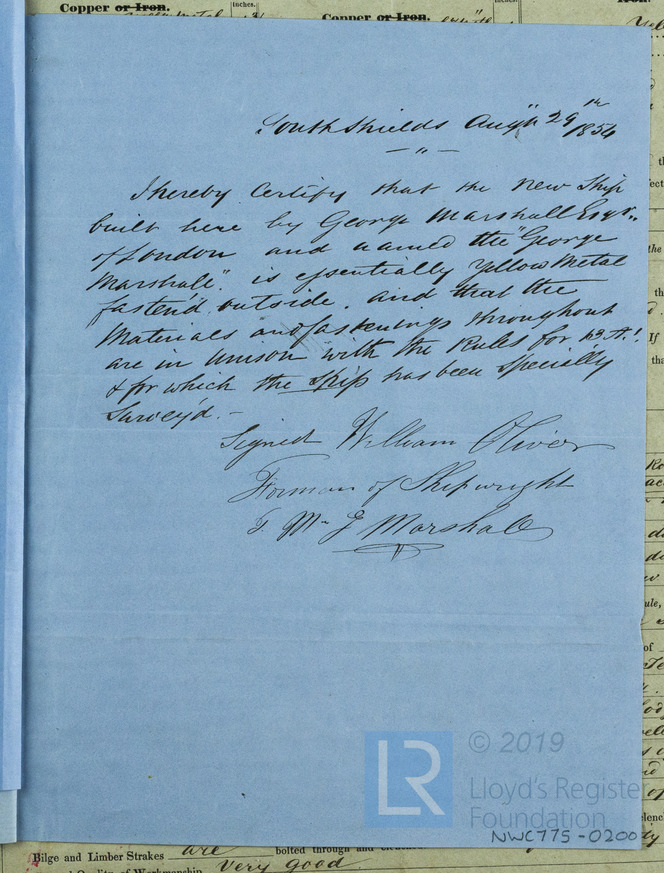 Copper or Iron.
inches.
Copper or Iron.
South Shields Augt 29th 1854
I hereby Certify that the new Ship
built here by George Marshall Esqr.
of London and named the "George
Marshall". is essentially Yellow Metal
fasten'd outside. and that the
Materials and fastenings throughout
are in unison with the Rules for 13. A.1.
& for which the Ship has been Specially
Survey'd. –
Signed William Oliver
Forman of Shipwright
T. Mr J Marshall
LR
© 2019
Lloyd's Registe
Foundation
NWC775-0200
Bilge and Limber Strakes are
bolted through and
Very good